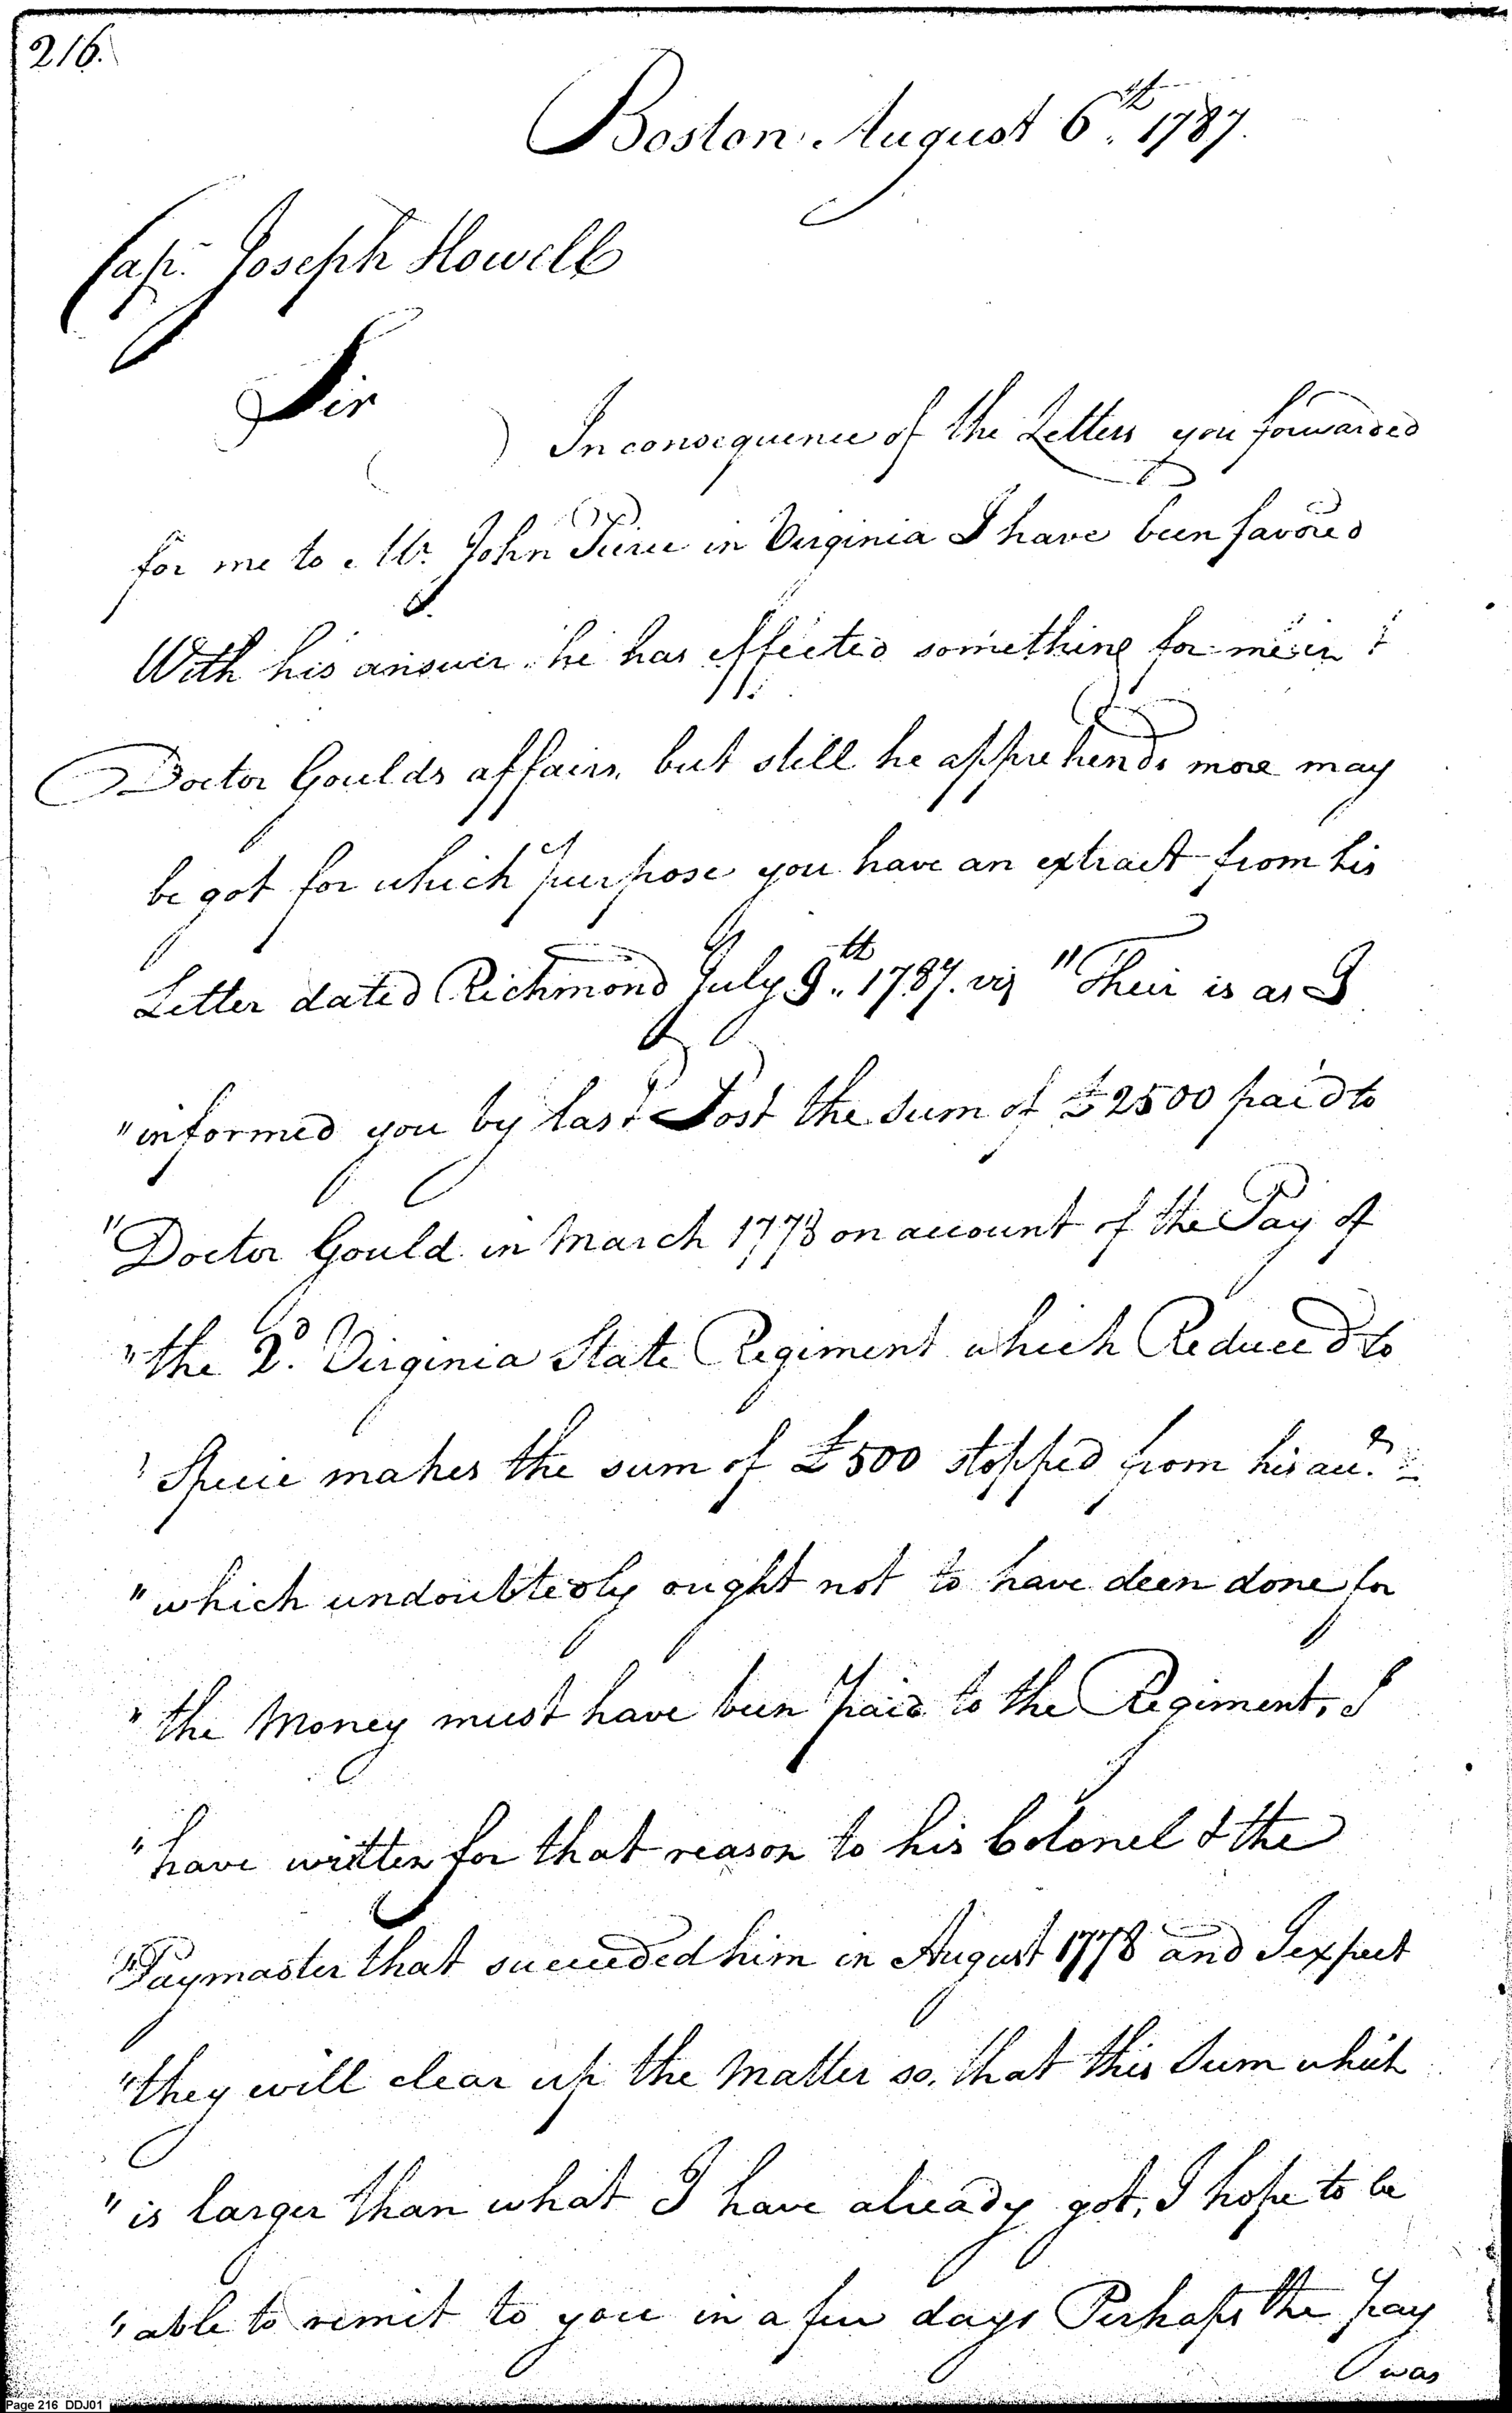 216.
Boston August 6.th 1787.
Capt. Joseph Howell
Sir
In consequence of the Letters you forwarded
for me to Mr. John Pierce in Virginia I have been favored
With his answer. he has effected something for me in
Doctor Goulds affairs, but still he apprehends more may
be got for which purpose you have an extract from his
Letter dated Richmond July 9th.. 1787. viz "Their is as I
"informed you by last Post the Sum of £2500 paid to
"Doctor Gould in March 1778 on account of the Pay of
"the 2d. Virginia State Regiment which Reduced to
"Specie makes the sum of £500 stopped from his acc.
"which undoubtedly ought not to have deen done for
"the Money must have been paid to the Regiment, I
"have written for that reason to his Colonel & the
"Paymaster that succeeded him in August 1778 and I expect
"they will clear up the Matter so, that this Sum which
"is larger than what I have already got, I hope to be
"able to remit to you in a few days Perhaps the pay
was
Page 216 DDJ01